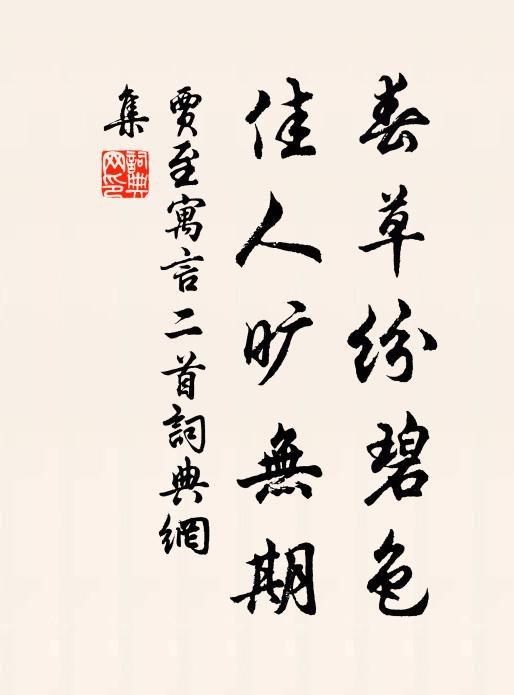 春草紛碧色
佳人旷無期
賈至寓言二首詞典網
集
詞典网印